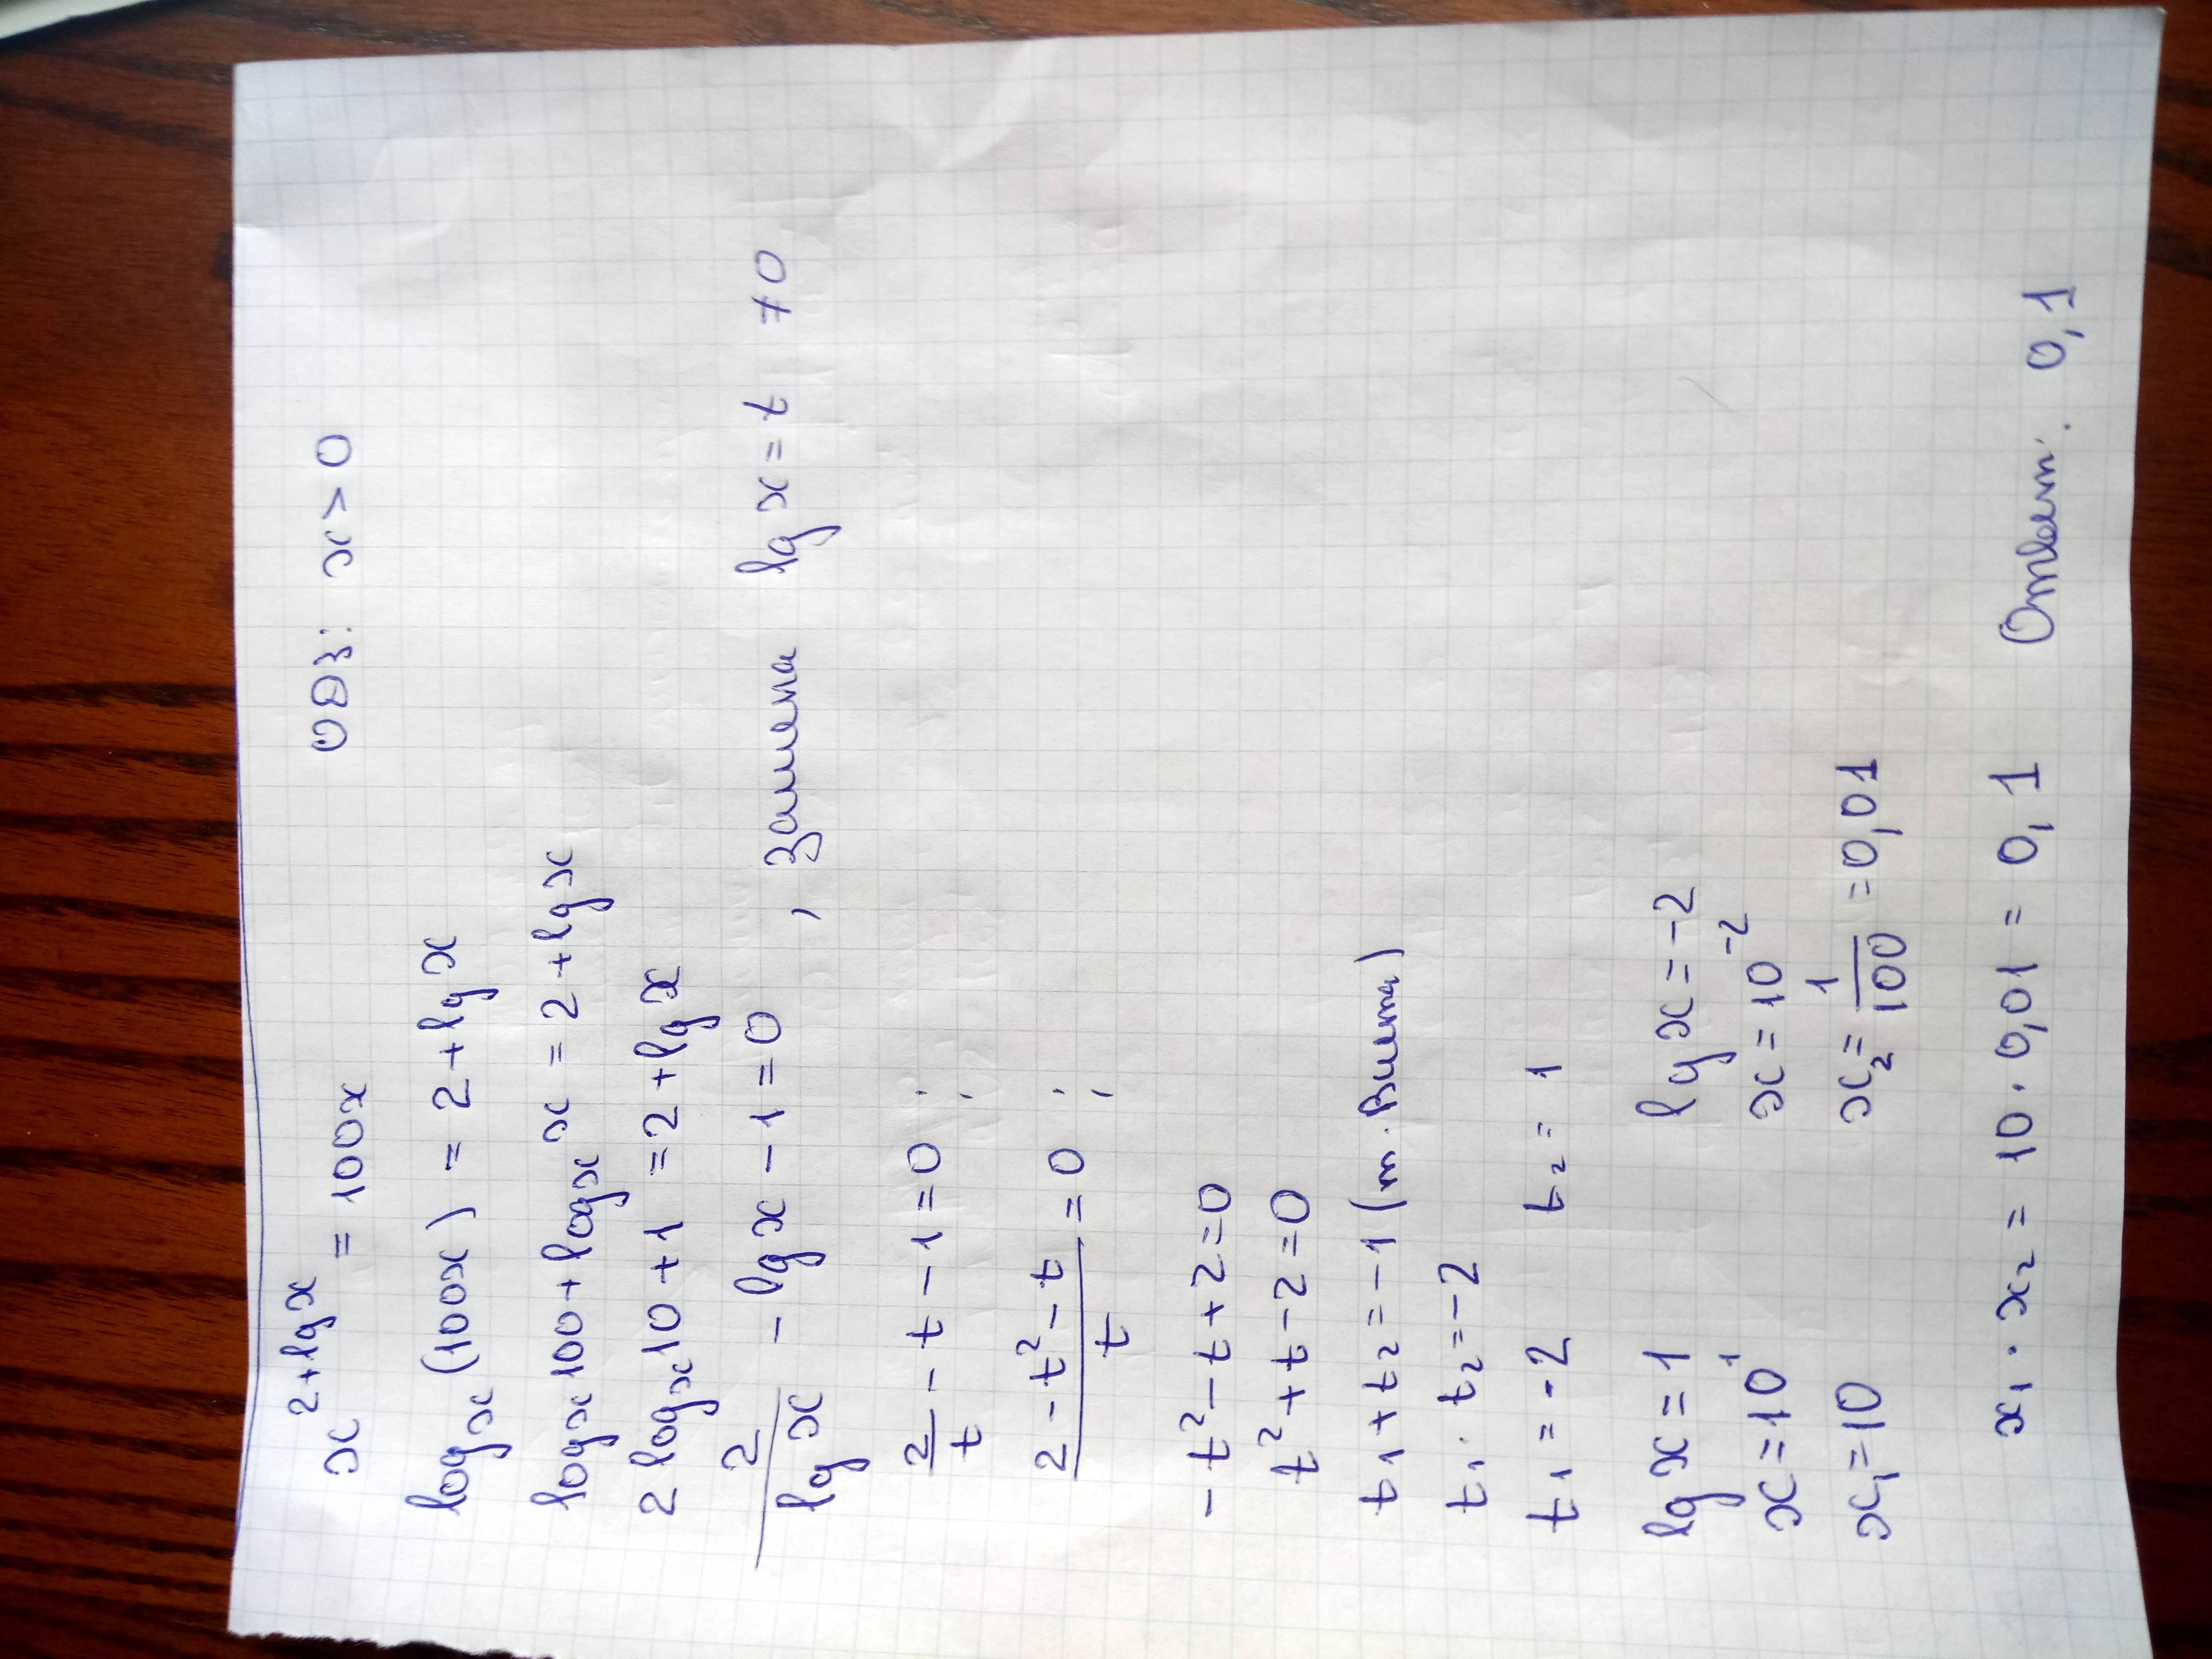 x^{2+lg x} = 100x ОДЗ: x > 0
log_x (100x) = 2 + lg x
log_x 100 + log_x x = 2 + lg x
2 log_x 10 + 1 = 2 + lg x
2/lg x - lg x - 1 = 0 , Замена lg x = t ≠ 0
2/t - t - 1 = 0 ;
(2 - t² - t)/t = 0 ;
- t² - t + 2 = 0
t² + t - 2 = 0
t₁ + t₂ = -1 (т. Виета)
t₁ · t₂ = -2
t₁ = -2 t₂ = 1
lg x = 1 lg x = -2
x = 10¹ x = 10⁻²
x₁ = 10 x₂ = 1/100 = 0,01
x₁ · x₂ = 10 · 0,01 = 0,1 Ответ: 0,1